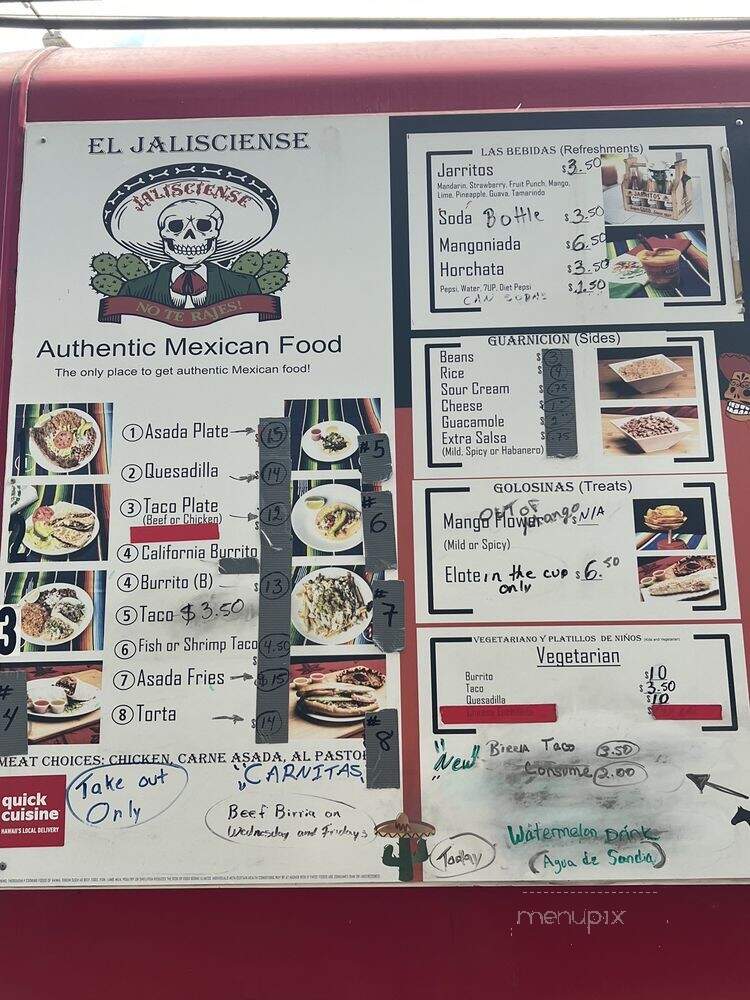 EL JALISCIENSE
JALISCIENSE
NO TE RAJES!
Authentic Mexican Food
The only place to get authentic Mexican food!
① Asada Plate $15
② Quesadilla $14
③ Taco Plate $12
(Beef or Chicken)
④ California Burrito
④ Burrito (B) 13
⑤ Taco $3.50
⑥ Fish or Shrimp Taco 4.50
$
⑦ Asada Fries $15
⑧ Torta $14
3
#4
#5
#6
#7
#8
MEAT CHOICES: CHICKEN, CARNE ASADA, AL PASTOR
"CARNITAS"
quick
cuisine
HAWAII'S LOCAL DELIVERY
Take out
Only
Beef Birria on
Wednesday and Fridays
LAS BEBIDAS (Refreshments)
Jarritos $3.50
Mandarin, Strawberry, Fruit Punch, Mango,
Lime, Pineapple, Guava, Tamarindo
Soda Bottle $3.50
Mangoniada $6.50
Horchata $3.50
Pepsi, Water, 7UP, Diet Pepsi $1.50
CAN SODAS
GUARNICION (Sides)
Beans $3
Rice $
Sour Cream $.75
Cheese $1
Guacamole $2
Extra Salsa $.75
(Mild, Spicy or Habanero)
GOLOSINAS (Treats)
OUT OF
Mango Flower mango $N/A
(Mild or Spicy)
Elote in the cup $6.50
only
VEGETARIANO Y PLATILLOS DE NIÑOS (Kids and Vegetarian)
Vegetarian
Burrito $10
Taco $3.50
Quesadilla $10
"New" Birria Taco 3.50
Consume 2.00
Watermelon Drink
Today (Agua de Sandia)
menupix